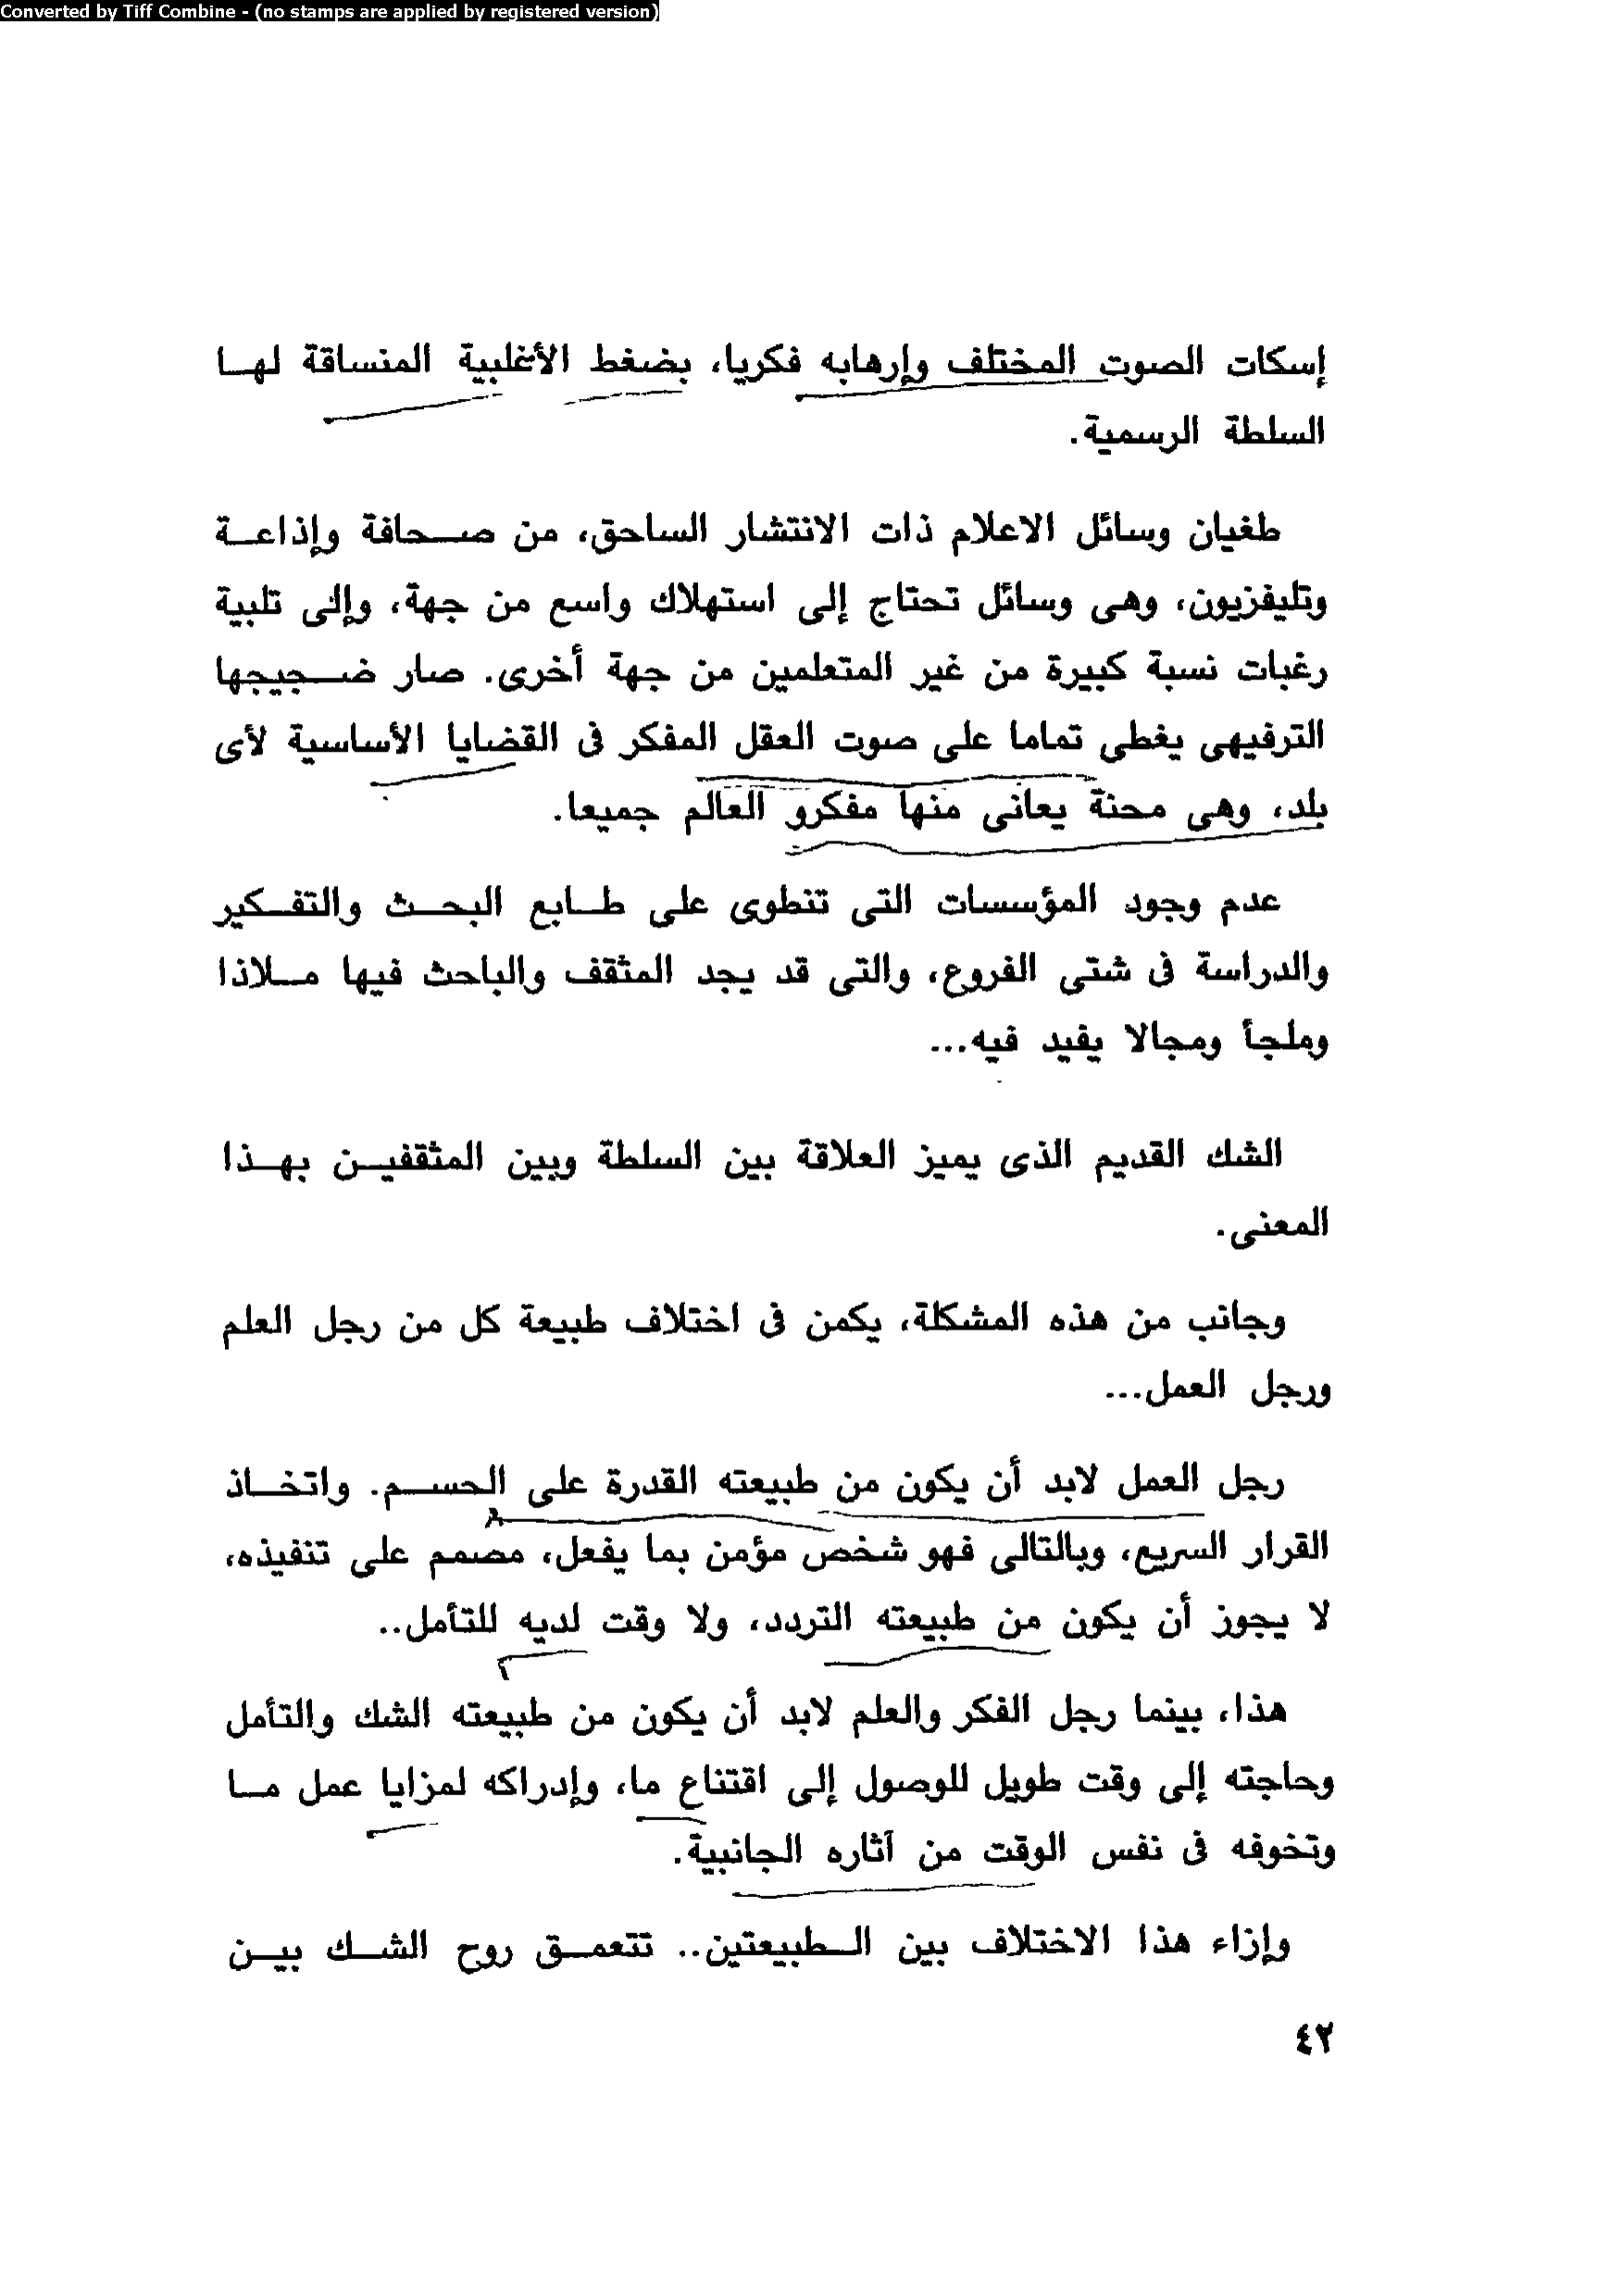 Converted by Tiff Combine - (no stamps are applied by registered version)
إسكات الصوت المختلف وإرهابه فكريا، بضغط الأغلبية المنساقة لهـا
السلطة الرسمية.
طغيان وسائل الاعلام ذات الانتشار الساحق، من صـحافة وإذاعـة
وتليفزيون، وهى وسائل تحتاج إلى استهلاك واسع من جهة، وإلى تلبية
رغبات نسبة كبيرة من غير المتعلمين من جهة أخرى. صار ضـجيجها
الترفيهى يغطى تماما على صوت العقل المفكر فى القضايا الأساسية لأى
بلد، وهى محنة يعانى منها مفكرو العالم جميعا.
عدم وجود المؤسسات التى تنطوى على طـابع البحـث والتفـكير
والدراسة فى شتى الفروع، والتى قد يجد المثقف والباحث فيها مـلاذا
وملجأ ومجالا يفيد فيه...
الشك القديم الذى يميز العلاقة بين السلطة وبين المثقفيـن بهـذا
المعنى.
وجانب من هذه المشكلة، يكمن فى اختلاف طبيعة كل من رجل العلم
ورجل العمل...
رجل العمل لابد أن يكون من طبيعته القدرة على الحسـم. واتخـاذ
القرار السريع، وبالتالى فهو شخص مؤمن بما يفعل، مصمم على تنفيذه،
لا يجوز أن يكون من طبيعته التردد، ولا وقت لديه للتأمل..
هذا، بينما رجل الفكر والعلم لابد أن يكون من طبيعته الشك والتأمل
وحاجته إلى وقت طويل للوصول إلى اقتناع ما، وإدراكه لمزايا عمل مـا
وتخوفه فى نفس الوقت من آثاره الجانبية.
وإزاء هذا الاختلاف بين الـطبيعتين.. تتعمـق روح الشـك بيـن
٤٢